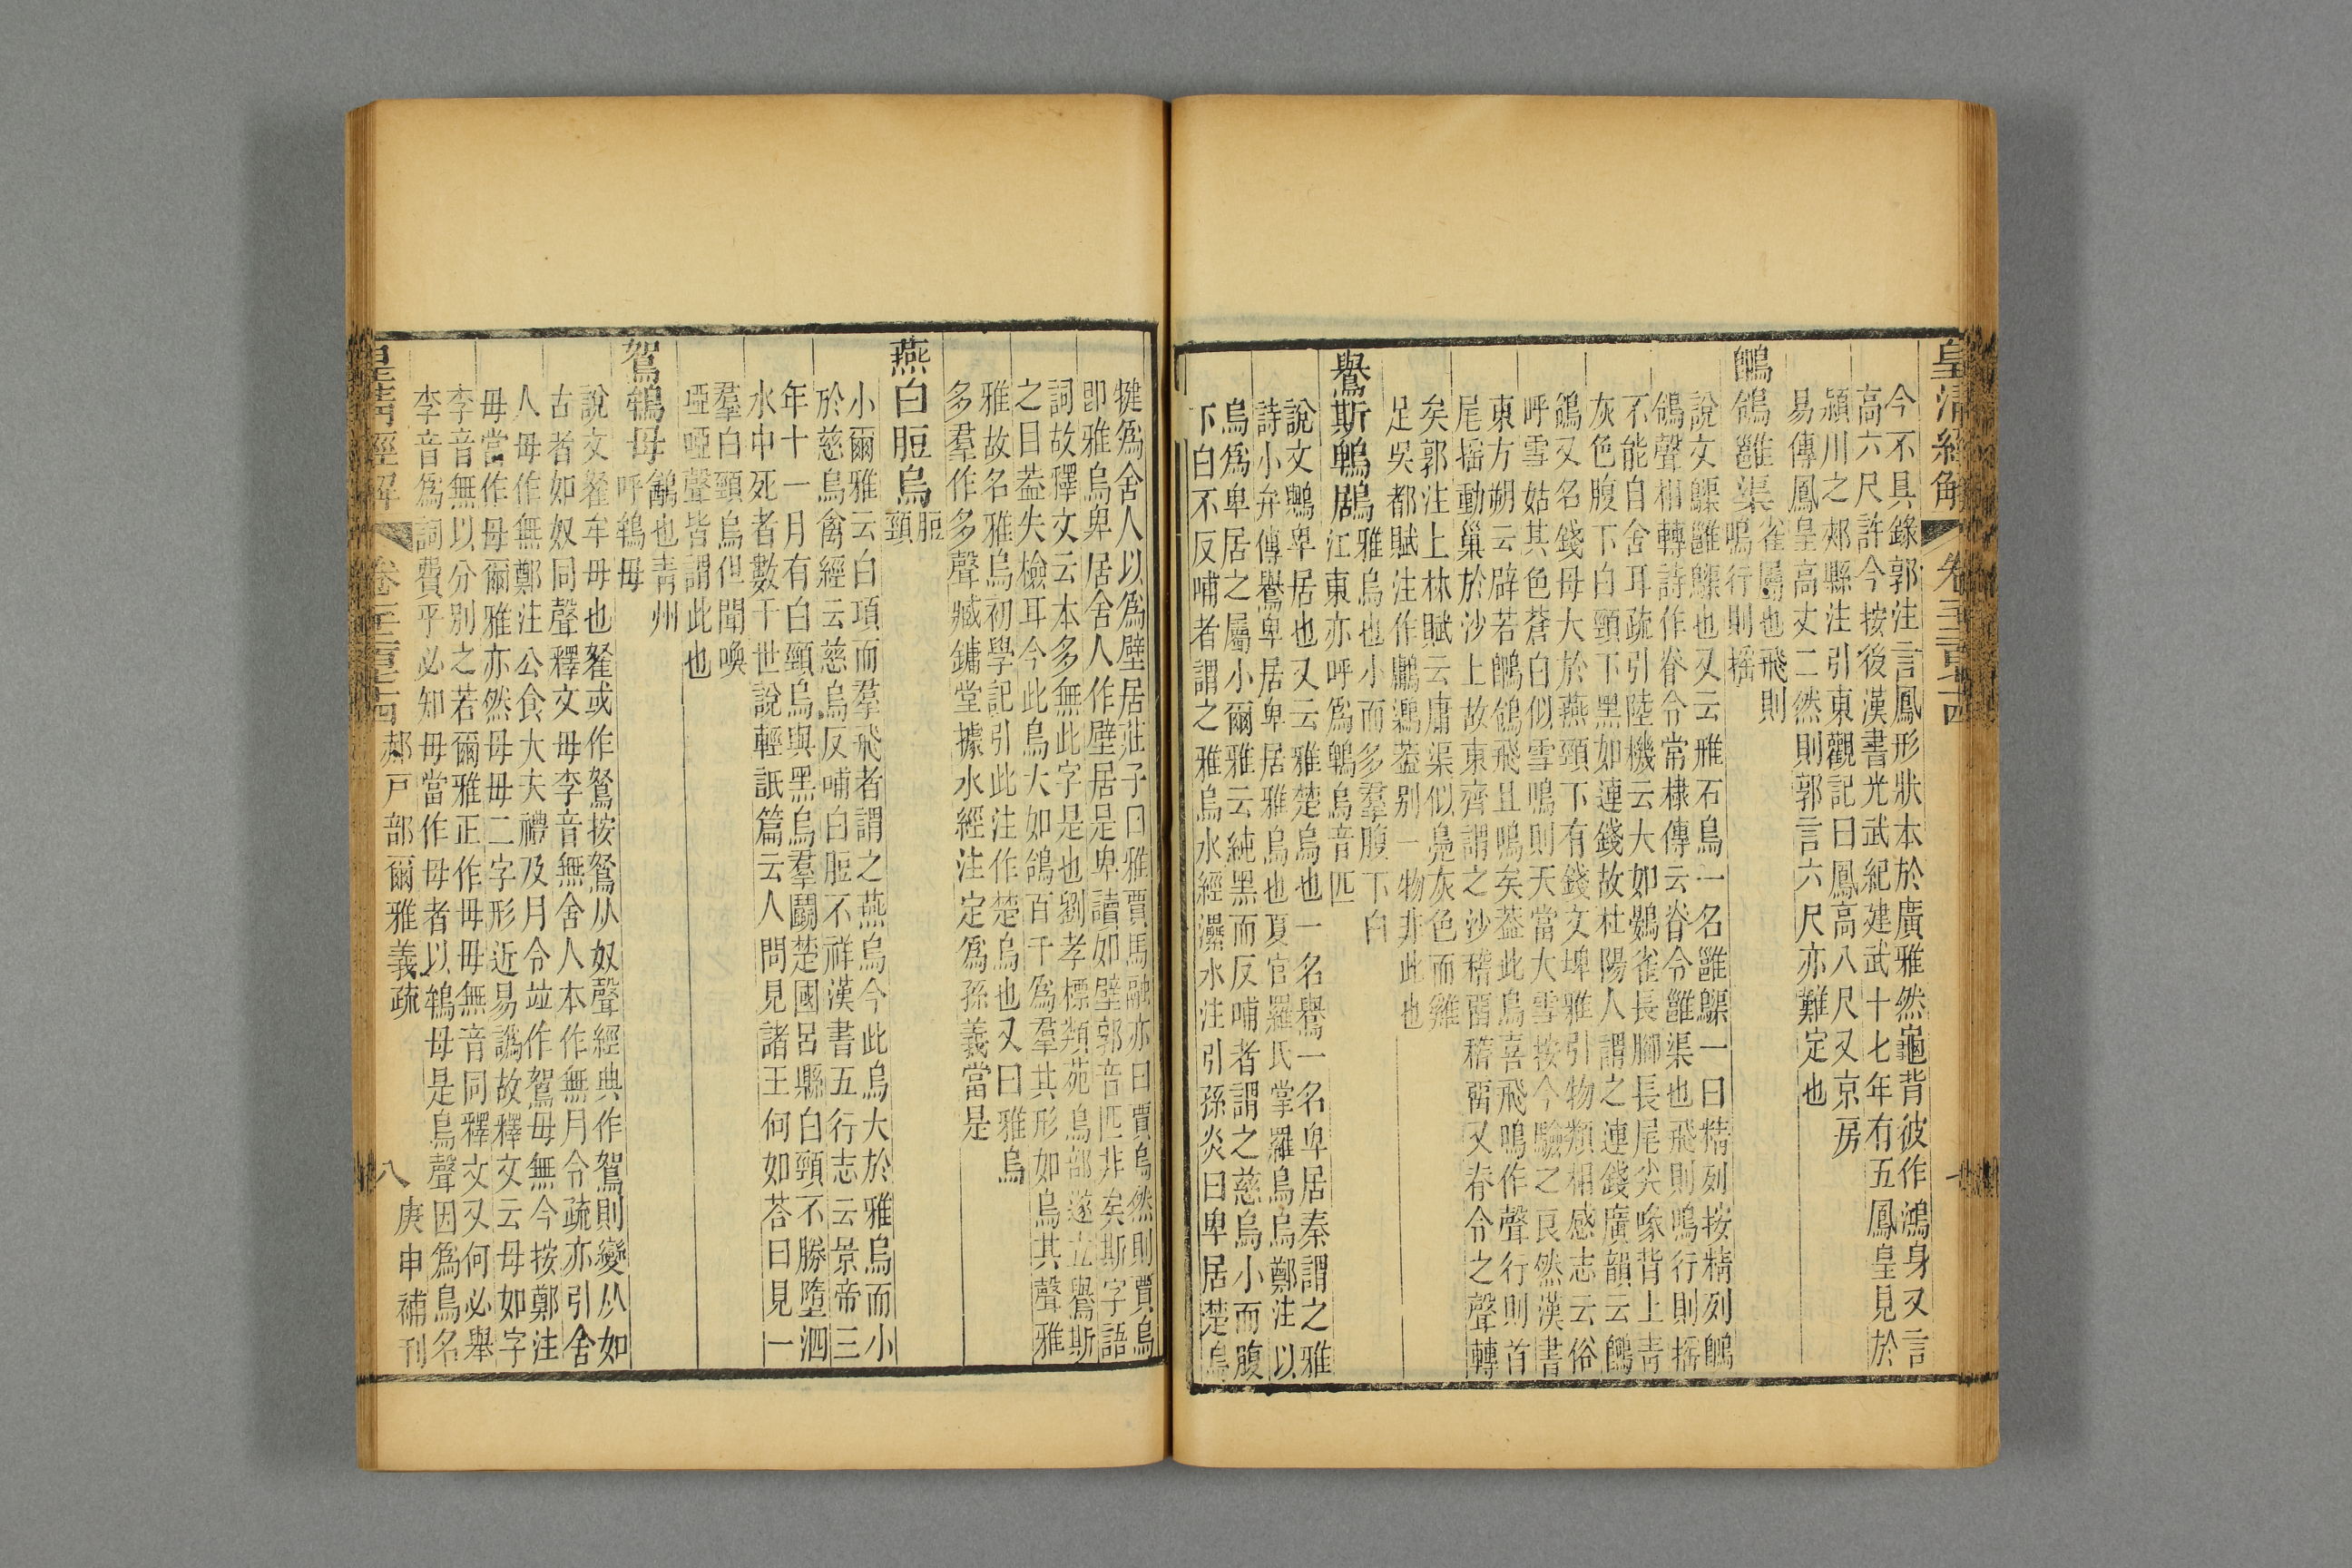 皇清經解
今不具錄郭注言鳳形狀本於廣雅然龜背彼作鴻身又言
高六尺許今按後漢書光武紀建武十七年有五鳳皇見於
潁川之郟縣注引東觀記曰鳳高八尺又京房
易傳鳳皇高丈二然則郭言六尺亦難定也
鶺鴒雝渠
雀屬也飛則
鳴行則搖
說文䳭雝䳭也又云雅石鳥一名雝䳭一曰精列按精列鶺
鴒聲相轉詩作脊令常棣傳云脊令雝渠也飛則鳴行則搖
不能自舍耳疏引陸機云大如鷃雀長腳長尾尖喙背上青
灰色腹下白頸下黑如連錢故杜陽人謂之連錢廣韻云鶺
鴒又名錢母大於燕頸下有錢文埤雅引物類相感志云俗
呼雪姑其色蒼白似雪鳴則天當大雪按今驗之良然漢書
東方朔云辟若鶺鴒飛且鳴矣葢此鳥喜飛鳴作聲行則首
尾搖動巢於沙上故東齊謂之沙䅥䨲䅥䨲又脊令之聲轉
矣郭注上林賦云庸渠似鳧灰色而雞
足吳都賦注作鷛䴌葢别一物非此也
鸒斯鵯鶋
雅烏也小而多羣腹下白
江東亦呼爲鵯烏音匹
說文鸒卑居也又云雅楚烏也一名鸒一名卑居秦謂之雅
詩小弁傳鸒卑居卑居雅烏也夏官羅氏掌羅烏烏鄭注以
烏爲卑居之屬小爾雅云純黑而反哺者謂之慈烏小而腹
下白不反哺者謂之雅烏水經灅水注引孫炎曰卑居楚烏
犍爲舍人以爲壁居莊子曰雅賈馬融亦曰賈烏然則賈烏
即雅烏卑居舍人作壁居是卑讀如壁郭音匹非矣斯字語
詞故釋文云本多無此字是也劉孝標類苑鳥部遂立鸒斯
之目葢失檢耳今此烏大如鴿百千爲羣其形如烏其聲雅
雅故名雅烏初學記引此注作楚烏也又曰雅烏
多羣作多聲臧鏞堂據水經注定爲孫義當是
燕白脰烏
脰
頸
小爾雅云白項而羣飛者謂之燕烏今此烏大於雅烏而小
於慈烏禽經云慈烏反哺白脰不祥漢書五行志云景帝三
年十一月有白頸烏與黑烏羣鬬楚國呂縣白頸不勝墮泗
水中死者數千世說輕詆篇云人問見諸王何如荅曰見一
羣白頸烏但聞喚
啞啞聲皆謂此也
鴽鴾母
䳺也青州
呼鴾母
說文䳛牟母也䳛或作鴽按鴽从奴聲經典作鴽則變从如
古者如奴同聲釋文毋李音無舍人本作無月令疏亦引舍
人毋作無鄭注公食大夫禮及月令竝作鴽毋無今按鄭注
毋當作母爾雅亦然母毋二字形近易譌故釋文云母如字
李音無以分别之若爾雅正作毋毋無音同釋文又何必舉
李音爲詞費乎必知毋當作母者以鴾母是鳥聲因爲鳥名
皇清經解
郝戸部爾雅義疏
八
庚申補刊